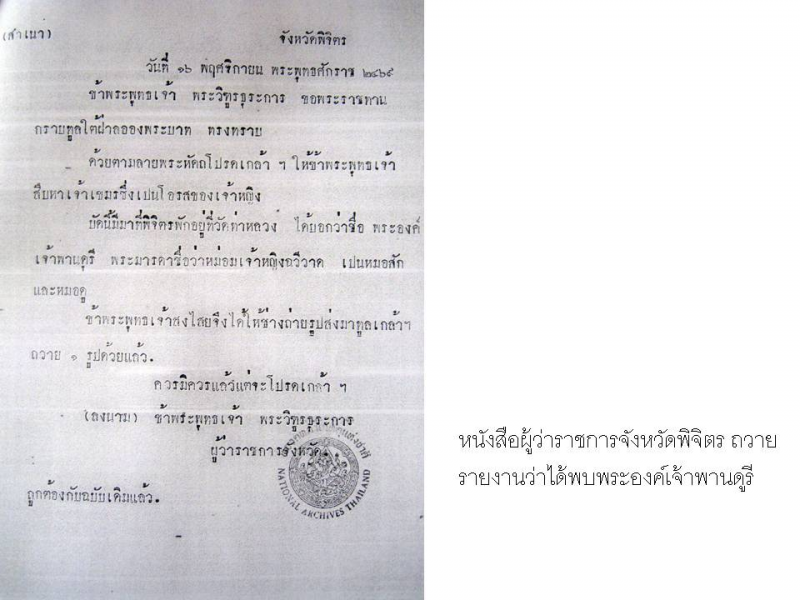 (สำเนา)
จังหวัดพิจิตร
วันที่ ๑๖ พฤศจิกายน พระพุทธศักราช ๒๔๖๙
ข้าพระพุทธเจ้า พระวิฑูรธุระการ ขอพระราชทาน
กราบทูลใต้ฝ่าลอองพระบาท ทรงทราบ
ด้วยตามลายพระหัตถโปรดเกล้า ฯ ให้ข้าพระพุทธเจ้า
สืบหาเจ้าเขมรซึ่งเปนโอรสของเจ้าหญิง
บัดนี้มีมาที่พิจิตรพักอยู่ที่วัดท่าหลวง ได้บอกว่าชื่อ พระองค์
เจ้าพานดุรี พระมารดาชื่อว่าหม่อมเจ้าหญิงฉวีวาด เปนหมอสัก
และหมอดู
ข้าพระพุทธเจ้าสงไสยจึงได้ให้ช่างถ่ายรูปส่งมาทูลเกล้าฯ
ถวาย ๑ รูปด้วยแล้ว.
ควรมิควรแล้วแต่จะโปรดเกล้า ฯ
(ลงนาม) ข้าพระพุทธเจ้า พระวิฑูรธุระการ
ผู้ว่าราชการจังหวัด.
NATIONAL ARCHIVES THAILAND
ถูกต้องกับฉบับเดิมแล้ว.
หนังสือผู้ว่าราชการจังหวัดพิจิตร ถวาย
รายงานว่าได้พบพระองค์เจ้าพานดูรี